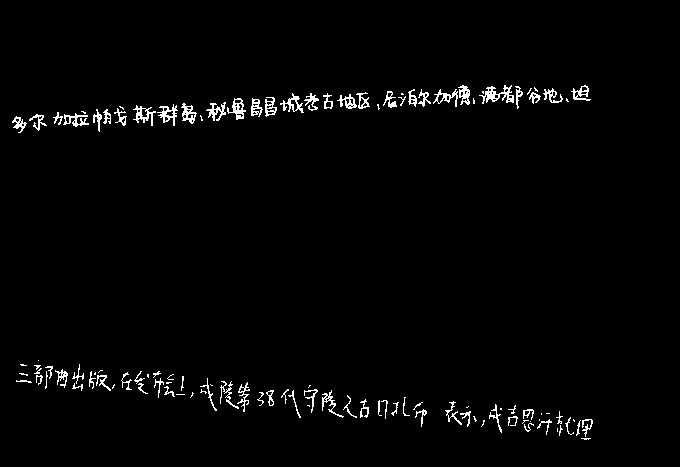 多尔加拉帕戈斯群岛、秘鲁昌昌城考古地区、尼泊尔加德满都谷地、坦
三部曲出版,在发布会上,成陵第38代守陵人古日扎布 表示,成吉思汗